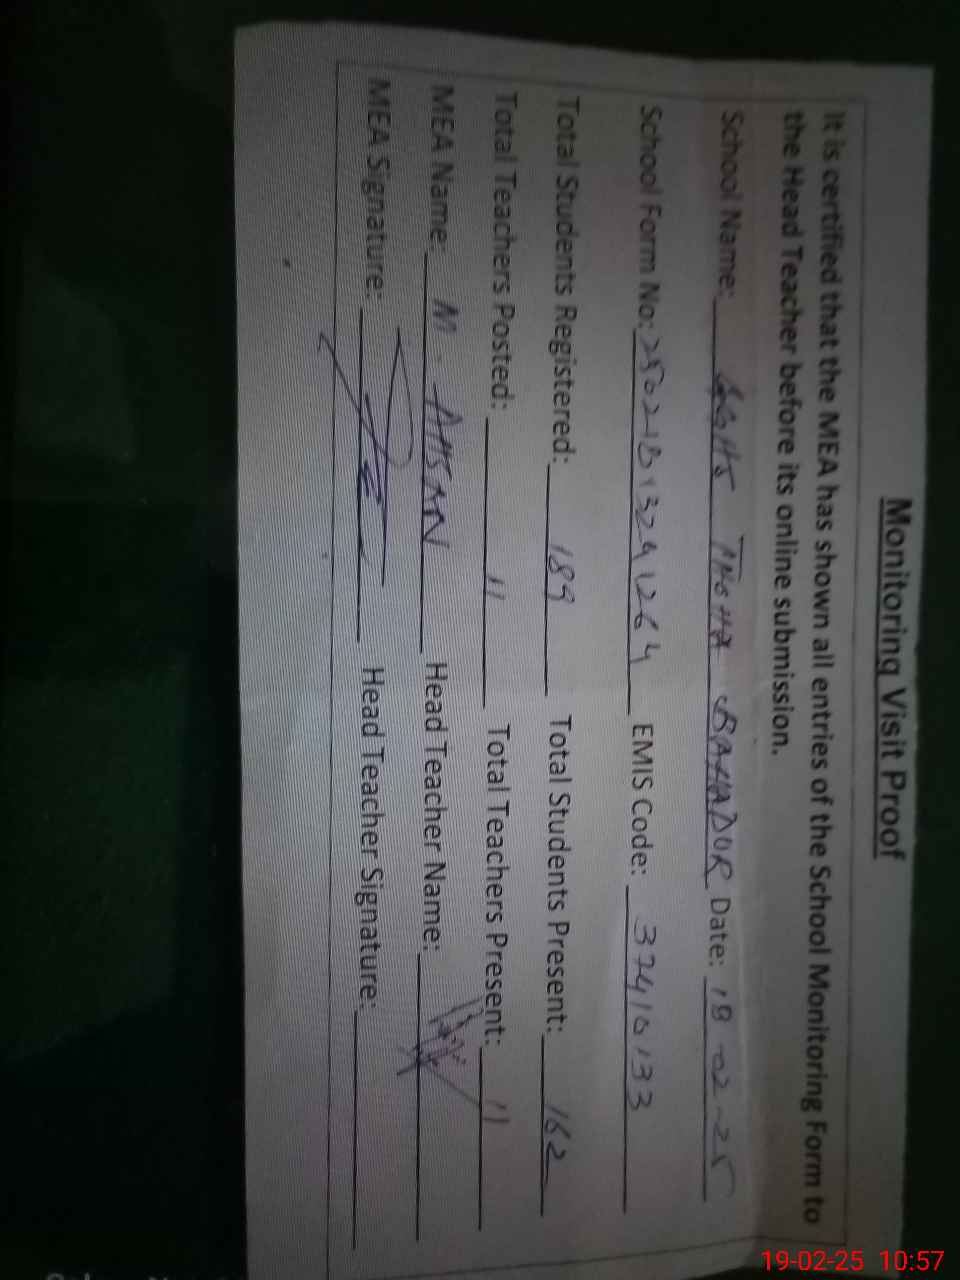 Monitoring Visit Proof
It is certified that the MEA has shown all entries of the School Monitoring Form to
the Head Teacher before its online submission.
School Name: GGHS THOHA BAHADUR Date: 18-02-25
School Form No: EMIS Code: 37410133
Total Students Registered: 189 Total Students Present: 162
Total Teachers Posted: 11 Total Teachers Present: 11
MEA Name: M. AHSAN Head Teacher Name:
MEA Signature: Head Teacher Signature:
19-02-25 10:57